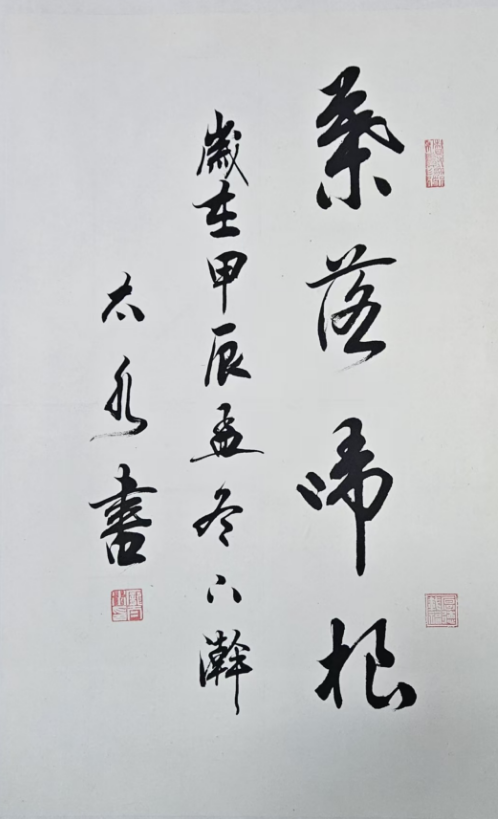 葉落歸根
歲在甲辰孟冬下澣
太永書